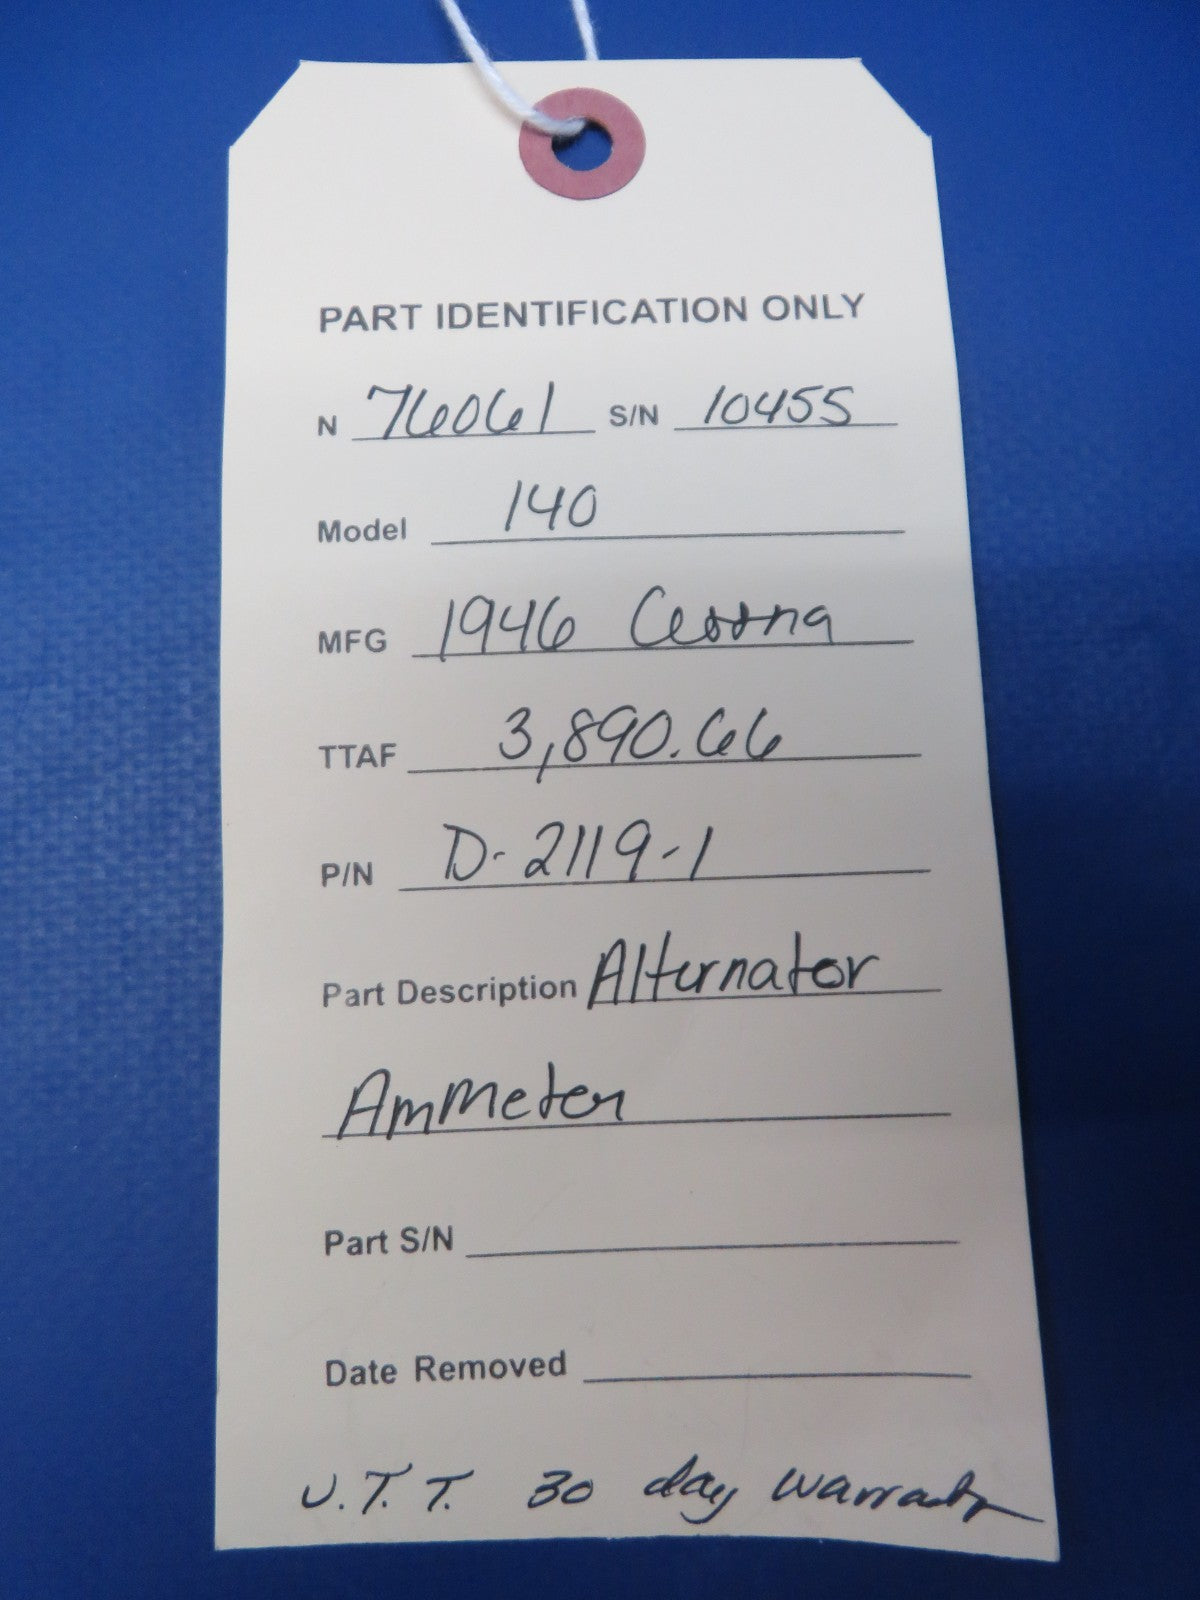 PART IDENTIFICATION ONLY
N 76061 S/N 10455
Model 140
MFG 1946 Cessna
TTAF 3,890.66
P/N D-2119-1
Part Description Alternator
Ammeter
Part S/N
Date Removed
U.T.T. 30 day warranty